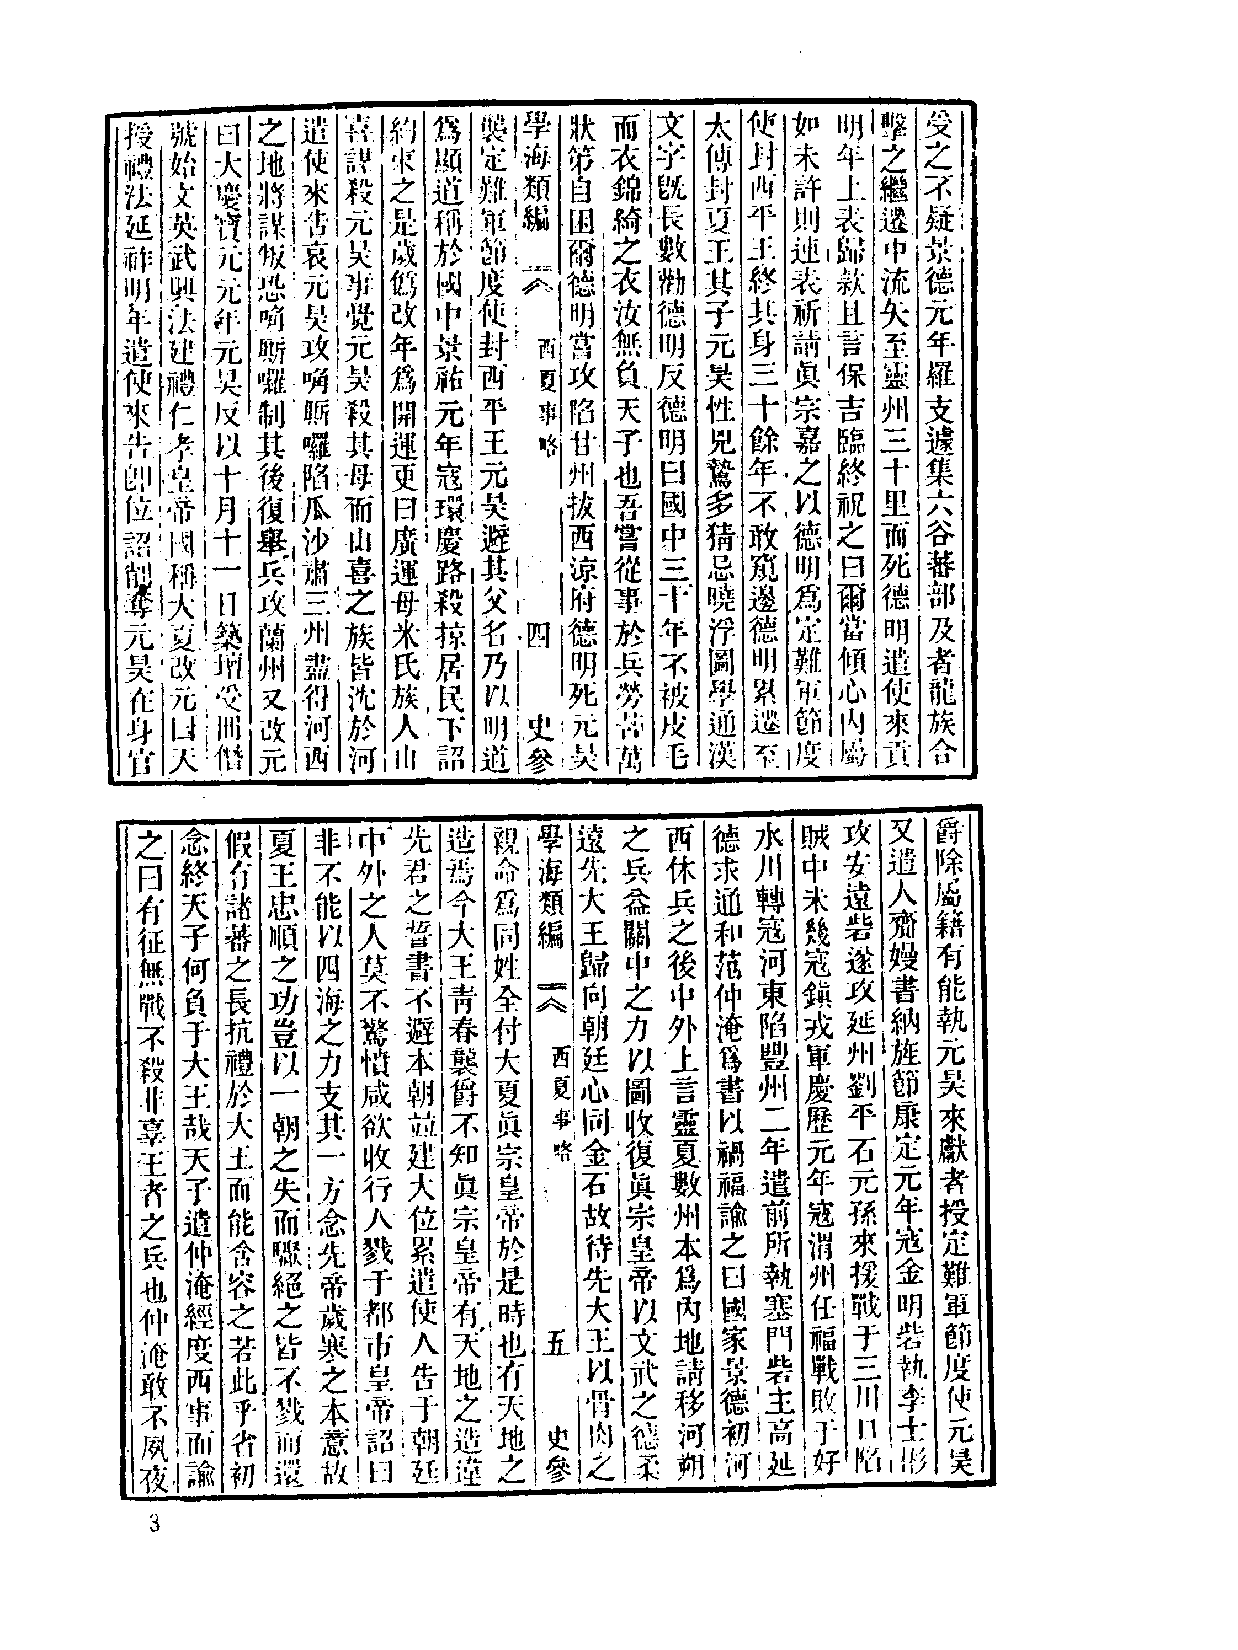 受之不疑景德元年羅支遽集六谷蕃部及者龍族合
擊之繼遷中流矢至靈州三十里而死德明遣使來貢
明年上表歸款且言保吉臨終祝之曰爾當傾心內屬
如未許則連表祈請眞宗嘉之以德明爲定難軍節度
使封西平王終其身三十餘年不敢窺邊德明累遷至
太傅封夏王其子元昊性兇鷙多猜忌曉浮圖學通漢
文字既長數勸德明反德明曰國中三十年不被皮毛
而衣錦綺之衣汝無負天子也吾嘗從事於兵勞苦萬
狀第自困爾德明嘗攻陷甘州拔西涼府德明死元昊
學海類編 西夏事略 四 史參
襲定難軍節度使封西平王元昊避其父名乃以明道
爲顯道稱於國中景祐元年寇環慶路殺掠居民下詔
約束之是歲僞改年爲開運更曰廣運母米氏族人山
喜謀殺元昊事覺元昊殺其母而山喜之族皆沈於河
遣使來告哀元昊攻唃厮囉陷瓜沙肅三州盡得河西
之地將謀叛恐唃厮囉制其後復舉兵攻蘭州又改元
曰大慶寶元元年元昊反以十月十一日築壇受冊僭
號始文英武興法建禮仁孝皇帝國稱大夏改元曰天
授禮法延祚明年遣使來告卽位詔削奪元昊在身官
爵除屬籍有能執元昊來獻者授定難軍節度使元昊
又遣人齎嫚書納旌節康定元年寇金明砦執李士彬
攻安遠砦遂攻延州劉平石元孫來援戰于三川口陷
賊中未幾寇鎮戎軍慶歷元年寇渭州任福戰敗于好
水川轉寇河東陷豐州二年遣前所執塞門砦主高延
德求通和范仲淹爲書以禍福諭之曰國家景德初河
西休兵之後中外上言靈夏數州本爲內地請移河朔
之兵益關中之力以圖收復眞宗皇帝以文武之德柔
遠先大王歸向朝廷心同金石故待先大王以骨肉之
學海類編 西夏事略 五 史參
親命爲同姓全付大夏眞宗皇帝於是時也有天地之
造焉今大王靑春襲爵不知眞宗皇帝有天地之造違
先君之誓書不避本朝並建大位累遣使人告于朝廷
中外之人莫不驚憤咸欲收行人戮于都市皇帝詔曰
非不能以四海之力支其一方念先帝歲寒之本意故
夏王忠順之功豈以一朝之失而驟絕之皆不戮而還
假有諸蕃之長抗禮於大王而能含容之若此乎省初
念終天子何負于大王哉天子遣仲淹經度西事而諭
之曰有征無戰不殺非辜王者之兵也仲淹敢不夙夜
3